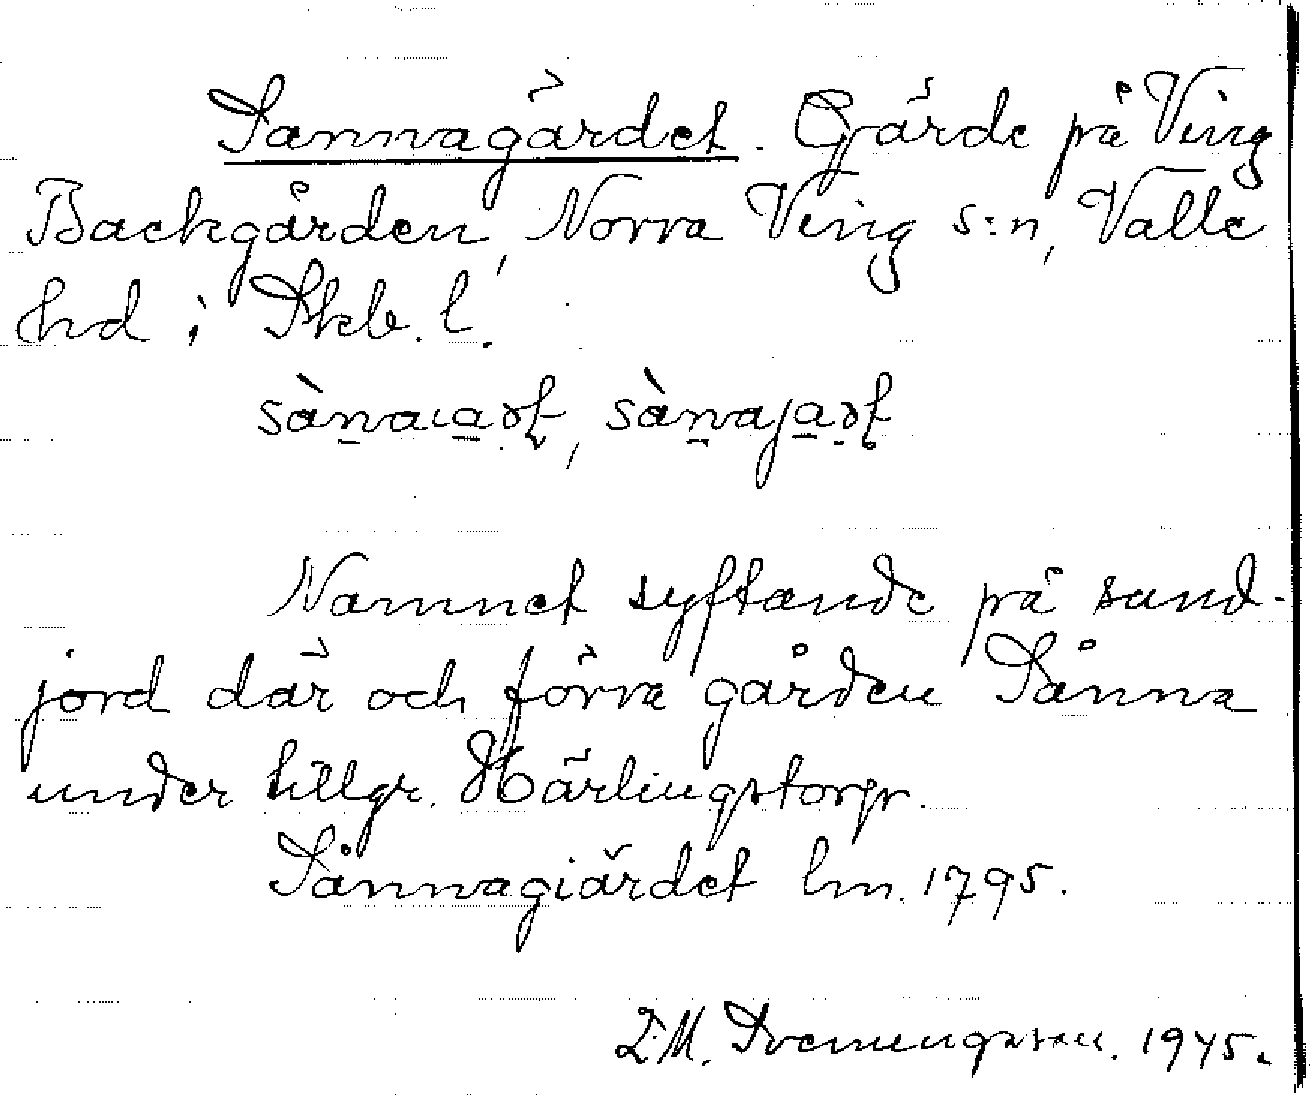 Sannagärdet. Gärde på Ving
Backgården, Norra Ving s:n, Valle
hd i Skb. l.
Namnet syftande på sand-
jord där och förra gården Sånna
under tillgr. Härlingstorpr.
Sånnagiärdet lm. 1795.
E.M. Svenungsson. 1945.